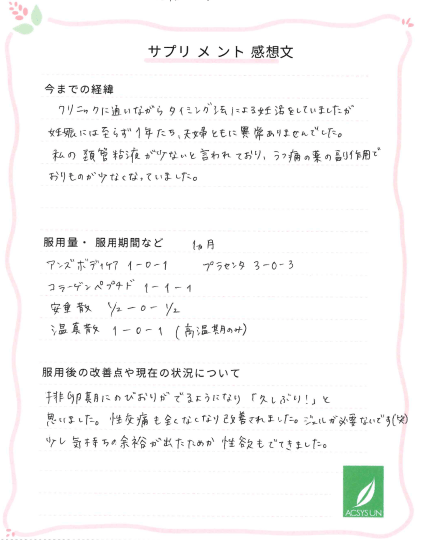 サプリメント感想文
今までの経緯
クリニックに通いながらタイミング法による妊活をしていましたが
妊娠には至らず1年たち、夫婦ともに異常ありませんでした。
私の頚管粘液が少ないと言われており、うつ病の薬の副作用で
おりものが少なくなっていました。
服用量・服用期間など 1ヵ月
アンズボディケア 1-0-1 プラセンタ 3-0-3
コラーゲンペプチド 1-1-1
安重散 1/2-0-1/2
温真散 1-0-1 (高温期のみ)
服用後の改善点や現在の状況について
排卵期にのびおりがでるようになり「久しぶり!」と
思いました。性交痛も全くなくなり改善されました。ジェルが必要ないです(笑)
少し気持ちの余裕が出たためか性欲もでてきました。
ACSYSUN